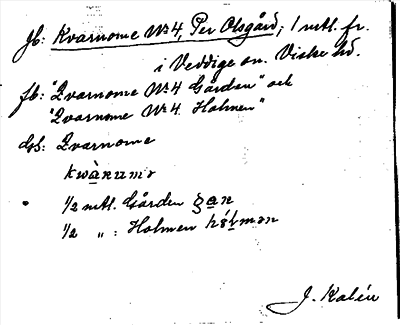 jb: Kvarnome Nr 4, Per Olsgård; 1 mtl. fr.
i Veddige sn. Viske hd.
fb: "Qvarnome No 4 Gården" och
"Qvarnome No 4 Holmen"
Gs: Qvarnome
kwàrnumə
1/2 mtl. Gården gan
1/2 „ : Holmen hólmən
J. Kalén